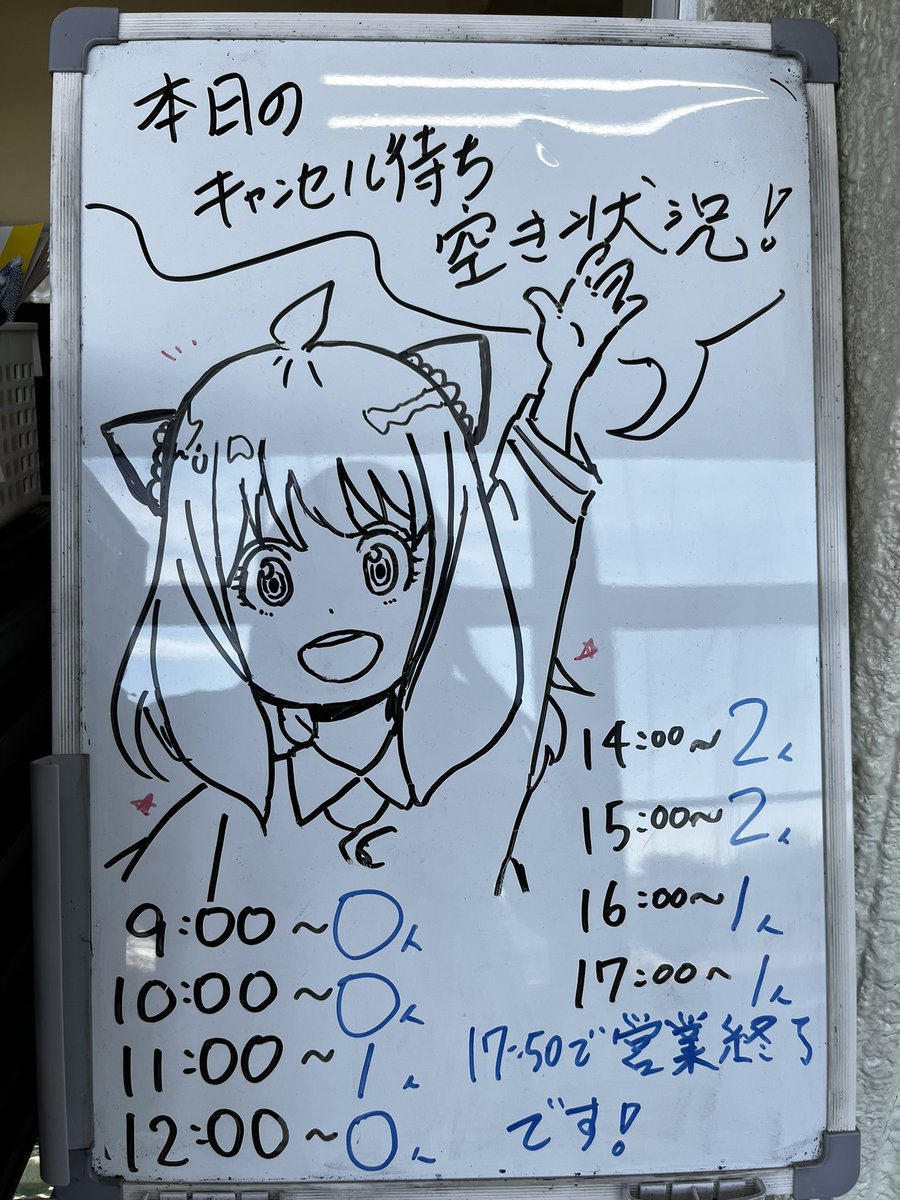 本日の
キャンセル待ち
空き状況!
9:00~0人
10:00~0人
11:00~1人
12:00~0人
14:00~2人
15:00~2人
16:00~1人
17:00~1人
17:50で営業終了
です!